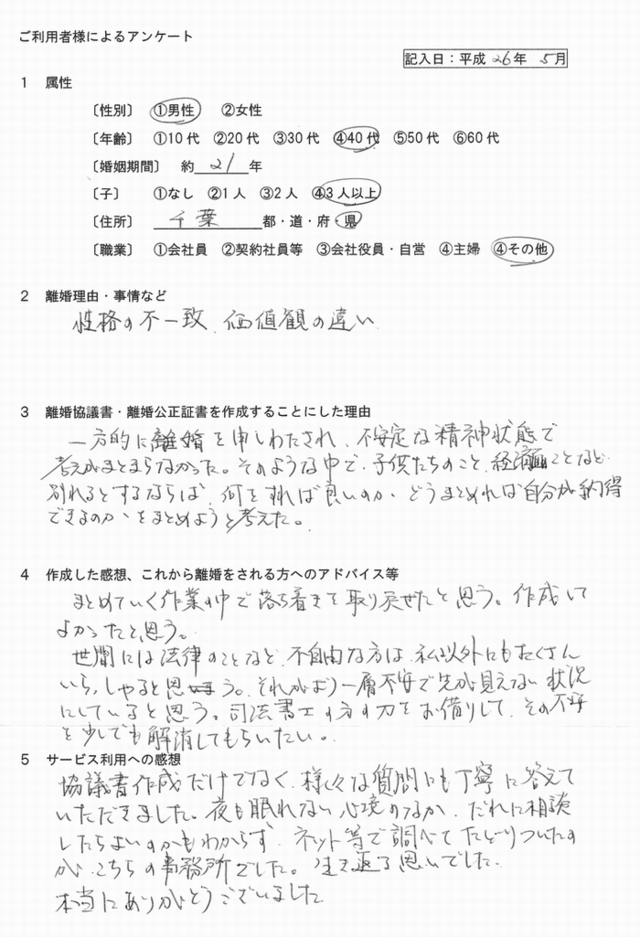 ご利用者様によるアンケート
記入日：平成 26年 5月
1 属性
〔性別〕 ①男性 ②女性
〔年齢〕 ①10代 ②20代 ③30代 ④40代 ⑤50代 ⑥60代
〔婚姻期間〕 約 21 年
〔子〕 ①なし ②1人 ③2人 ④3人以上
〔住所〕 千葉 都・道・府・県
〔職業〕 ①会社員 ②契約社員等 ③会社役員・自営 ④主婦 ④その他
2 離婚理由・事情など
性格の不一致、価値観の違い
3 離婚協議書・離婚公正証書を作成することにした理由
一方的に離婚を申しわたされ、不安定な精神状態で
考えがまとまらなかった。そのような中で、子供たちのこと、経済面ことなど
別れるとするならば、何をすれば良いのか、どうまとめれば自分が納得
できるのかをまとめようと考えた。
4 作成した感想、これから離婚をされる方へのアドバイス等
まとめていく作業の中で落ち着きを取り戻せたと思う。作成して
よかったと思う。
世間には法律のことなど、不自由な方は、私以外にもたくさん
いらっしゃると思う。それがより一層不安で先が見えない状況
にしていると思う。司法書士の方の力をお借りして、その不安
を少しでも解消してもらいたい。
5 サービス利用への感想
協議書作成だけでなく、様々な質問にも丁寧に答えて
いただきました。夜も眠れない心境のなか、だれに相談
したらよいのかもわからず、ネット等で調べてたどりついたの
が、こちらの事務所でした。生き返る思いでした。
本当にありがとうございました